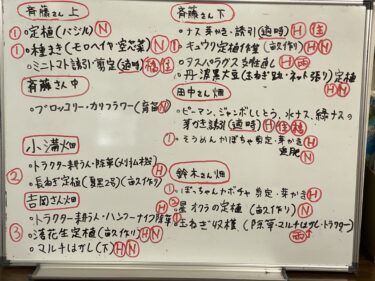 斉藤さん 上
① 定植(バジル) N
① 種まき(モロヘイヤ・空芯菜) N
ミニトマト誘引・剪定(適時)
斉藤さん 中
ブロッコリー・カリフラワー(育苗) N
小溝畑
② トラクター耕うん・除草
長ねぎ定植(夏黒2号)(畝立作り) H N
吉岡さん畑
トラクター耕うん・ハンマーナイフ除草 H
③ 落花生定植(畝立作り) H N
マルチはがし(下) H N
斉藤さん 下
ナス 芽かき・誘引(適時) H
① キュウリ定植作業(畝立作り) H N
アスパラガス 支柱直し H
丹波黒大豆(玉ねぎ跡・ネット張り)定植 H N
田中さん畑
ピーマン、ジャンボししとう、水ナス、緑ナスの
芽かき誘引(適時) H
① そうめんかぼちゃ剪定・芽かき H
追肥 N
鈴木さん畑
① ぼっちゃんカボチャ 剪定・芽かき H
② 星オクラの定植(畝立作り) N
① 玉ねぎ収穫(除草・マルチはがし・トラクター)
H